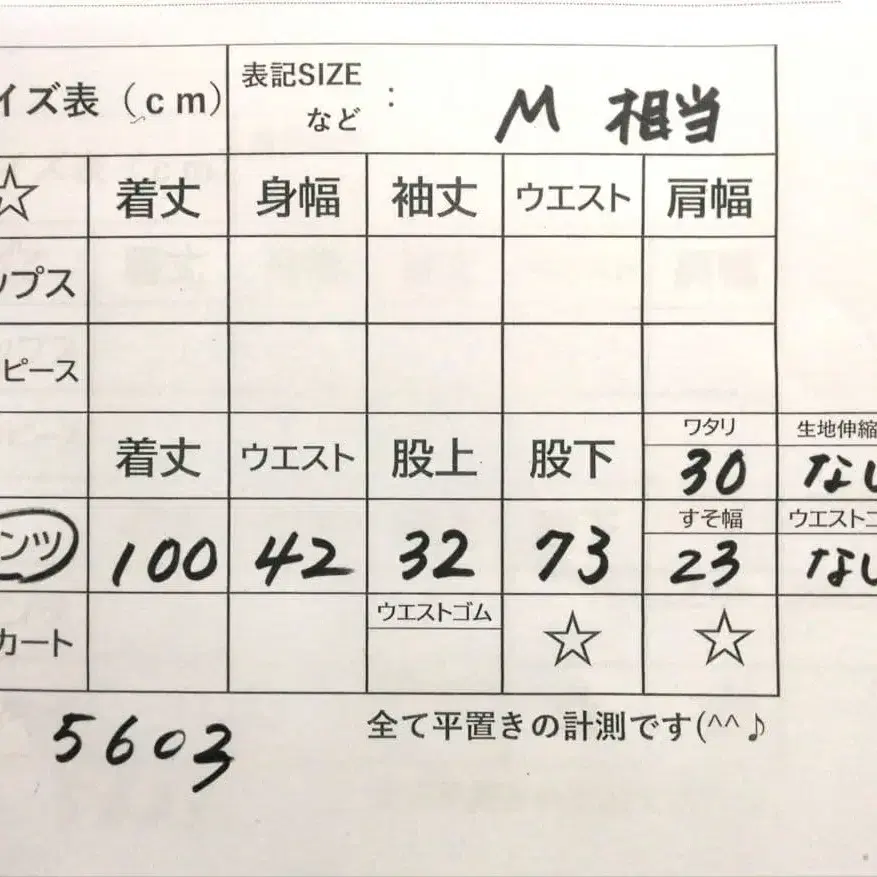 イズ表（cm） 表記SIZE など : M 相当
☆ 着丈 身幅 袖丈 ウエスト 肩幅
ップス
ピース
着丈 ウエスト 股上 股下 ワタリ 30 生地伸縮 なし
ンツ 100 42 32 73 すそ幅 23 ウエストゴ なし
カート ウエストゴム ☆ ☆
5603 全て平置きの計測です(^^♪